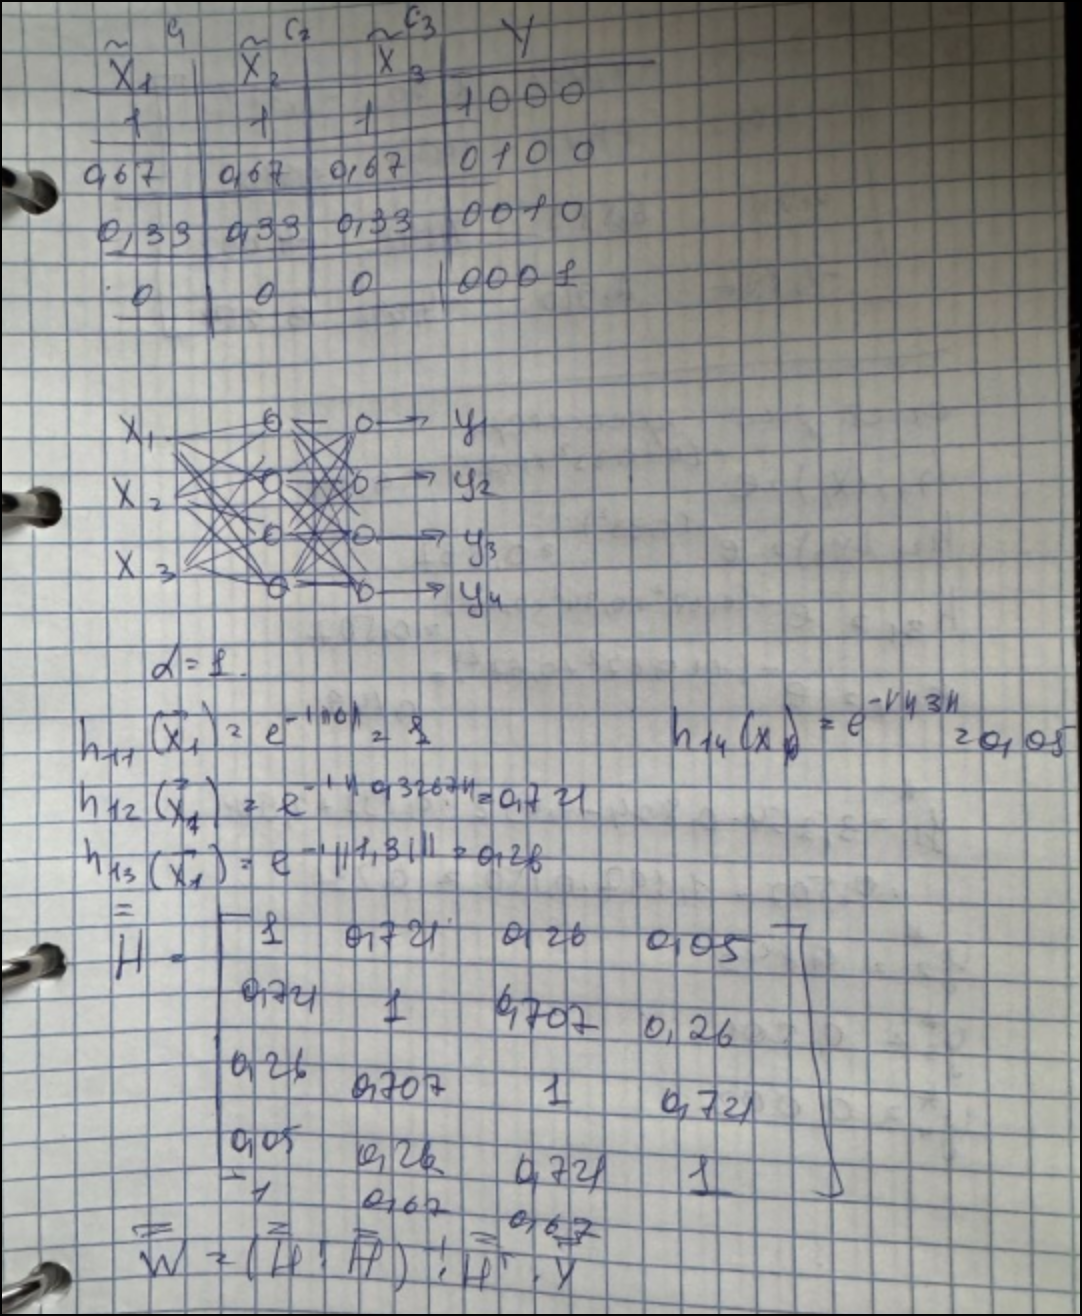 C1 C2 C3
X̃1 X̃2 X̃3 Y
1 1 1 1 0 0 0
0,67 0,67 0,67 0 1 0 0
0,33 0,33 0,33 0 0 1 0
0 0 0 0 0 0 1
X1 y1
X2 y2
X3 y3
y4
α = 1.
h11 (x⃗1) = e^-1||0|| = 1 h14 (x1) = e^-1||3|| = 0,05
h12 (x⃗1) = e^-1||0,3267|| = 0,721
h13 (x⃗1) = e^-1||1,31|| = 0,26
H =
1 0,721 0,26 0,05
0,721 1 0,707 0,26
0,26 0,707 1 0,721
0,05 0,26 0,721 1
-1 0,67 0,67
W = (H^T · H)^-1 · H^T · Y